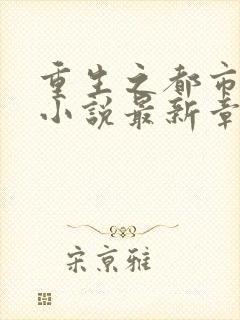 重生之都市
小说最新章
宋京雅